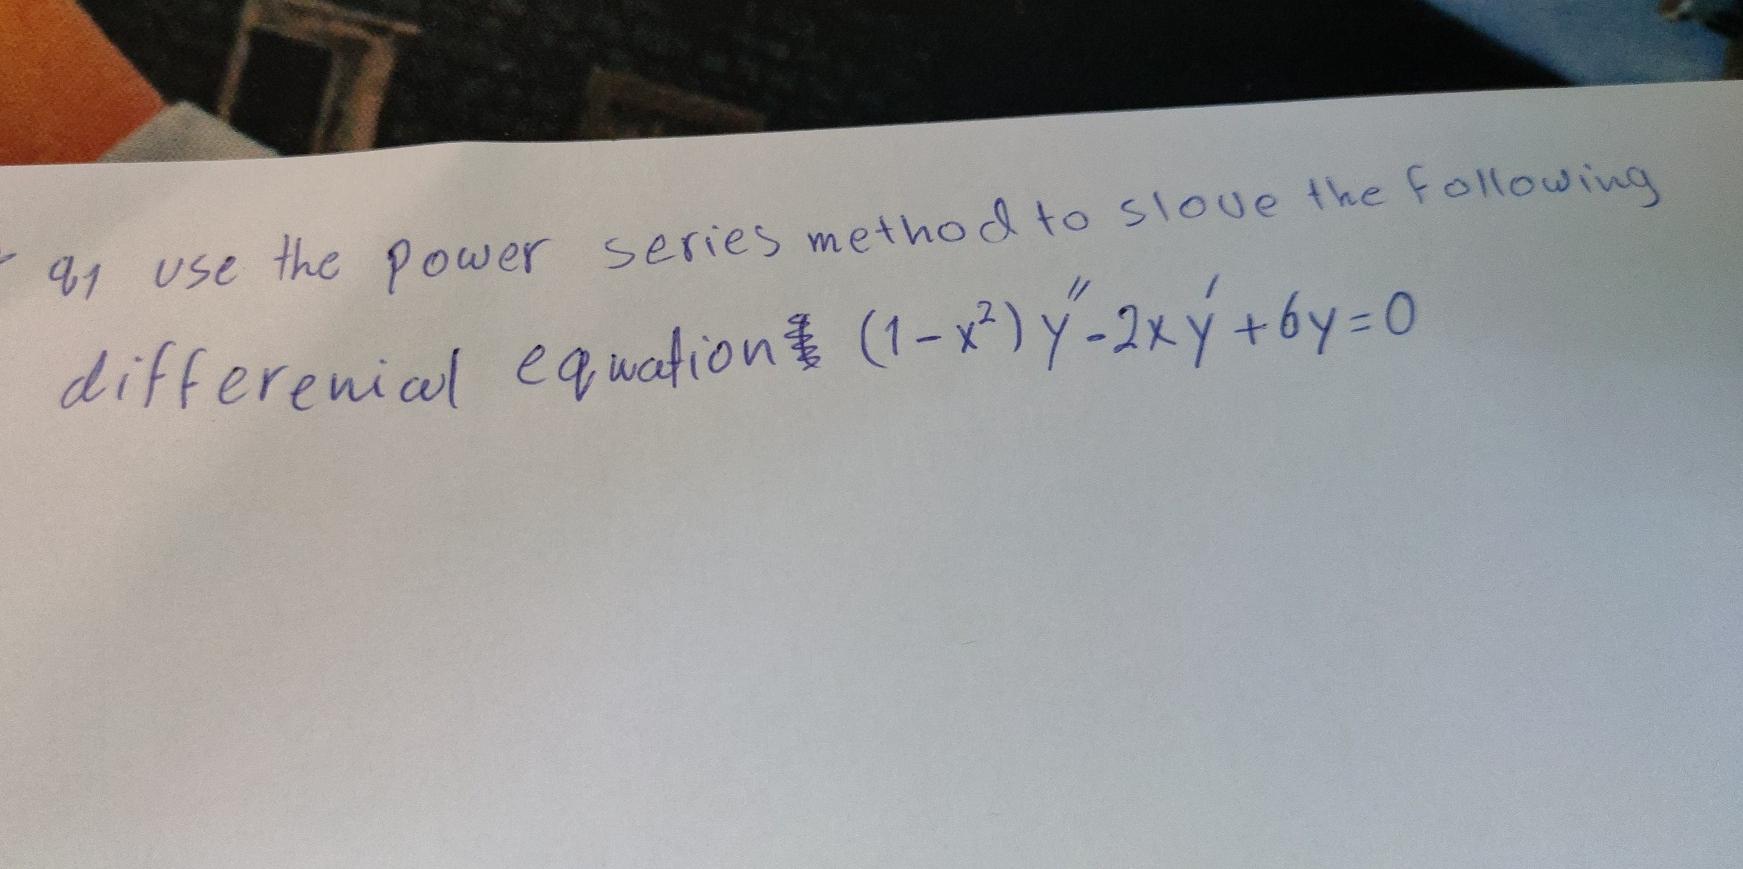 q1 use the power series method to slove the following
differenial equation (1-x²)y"-2xy'+6y=0